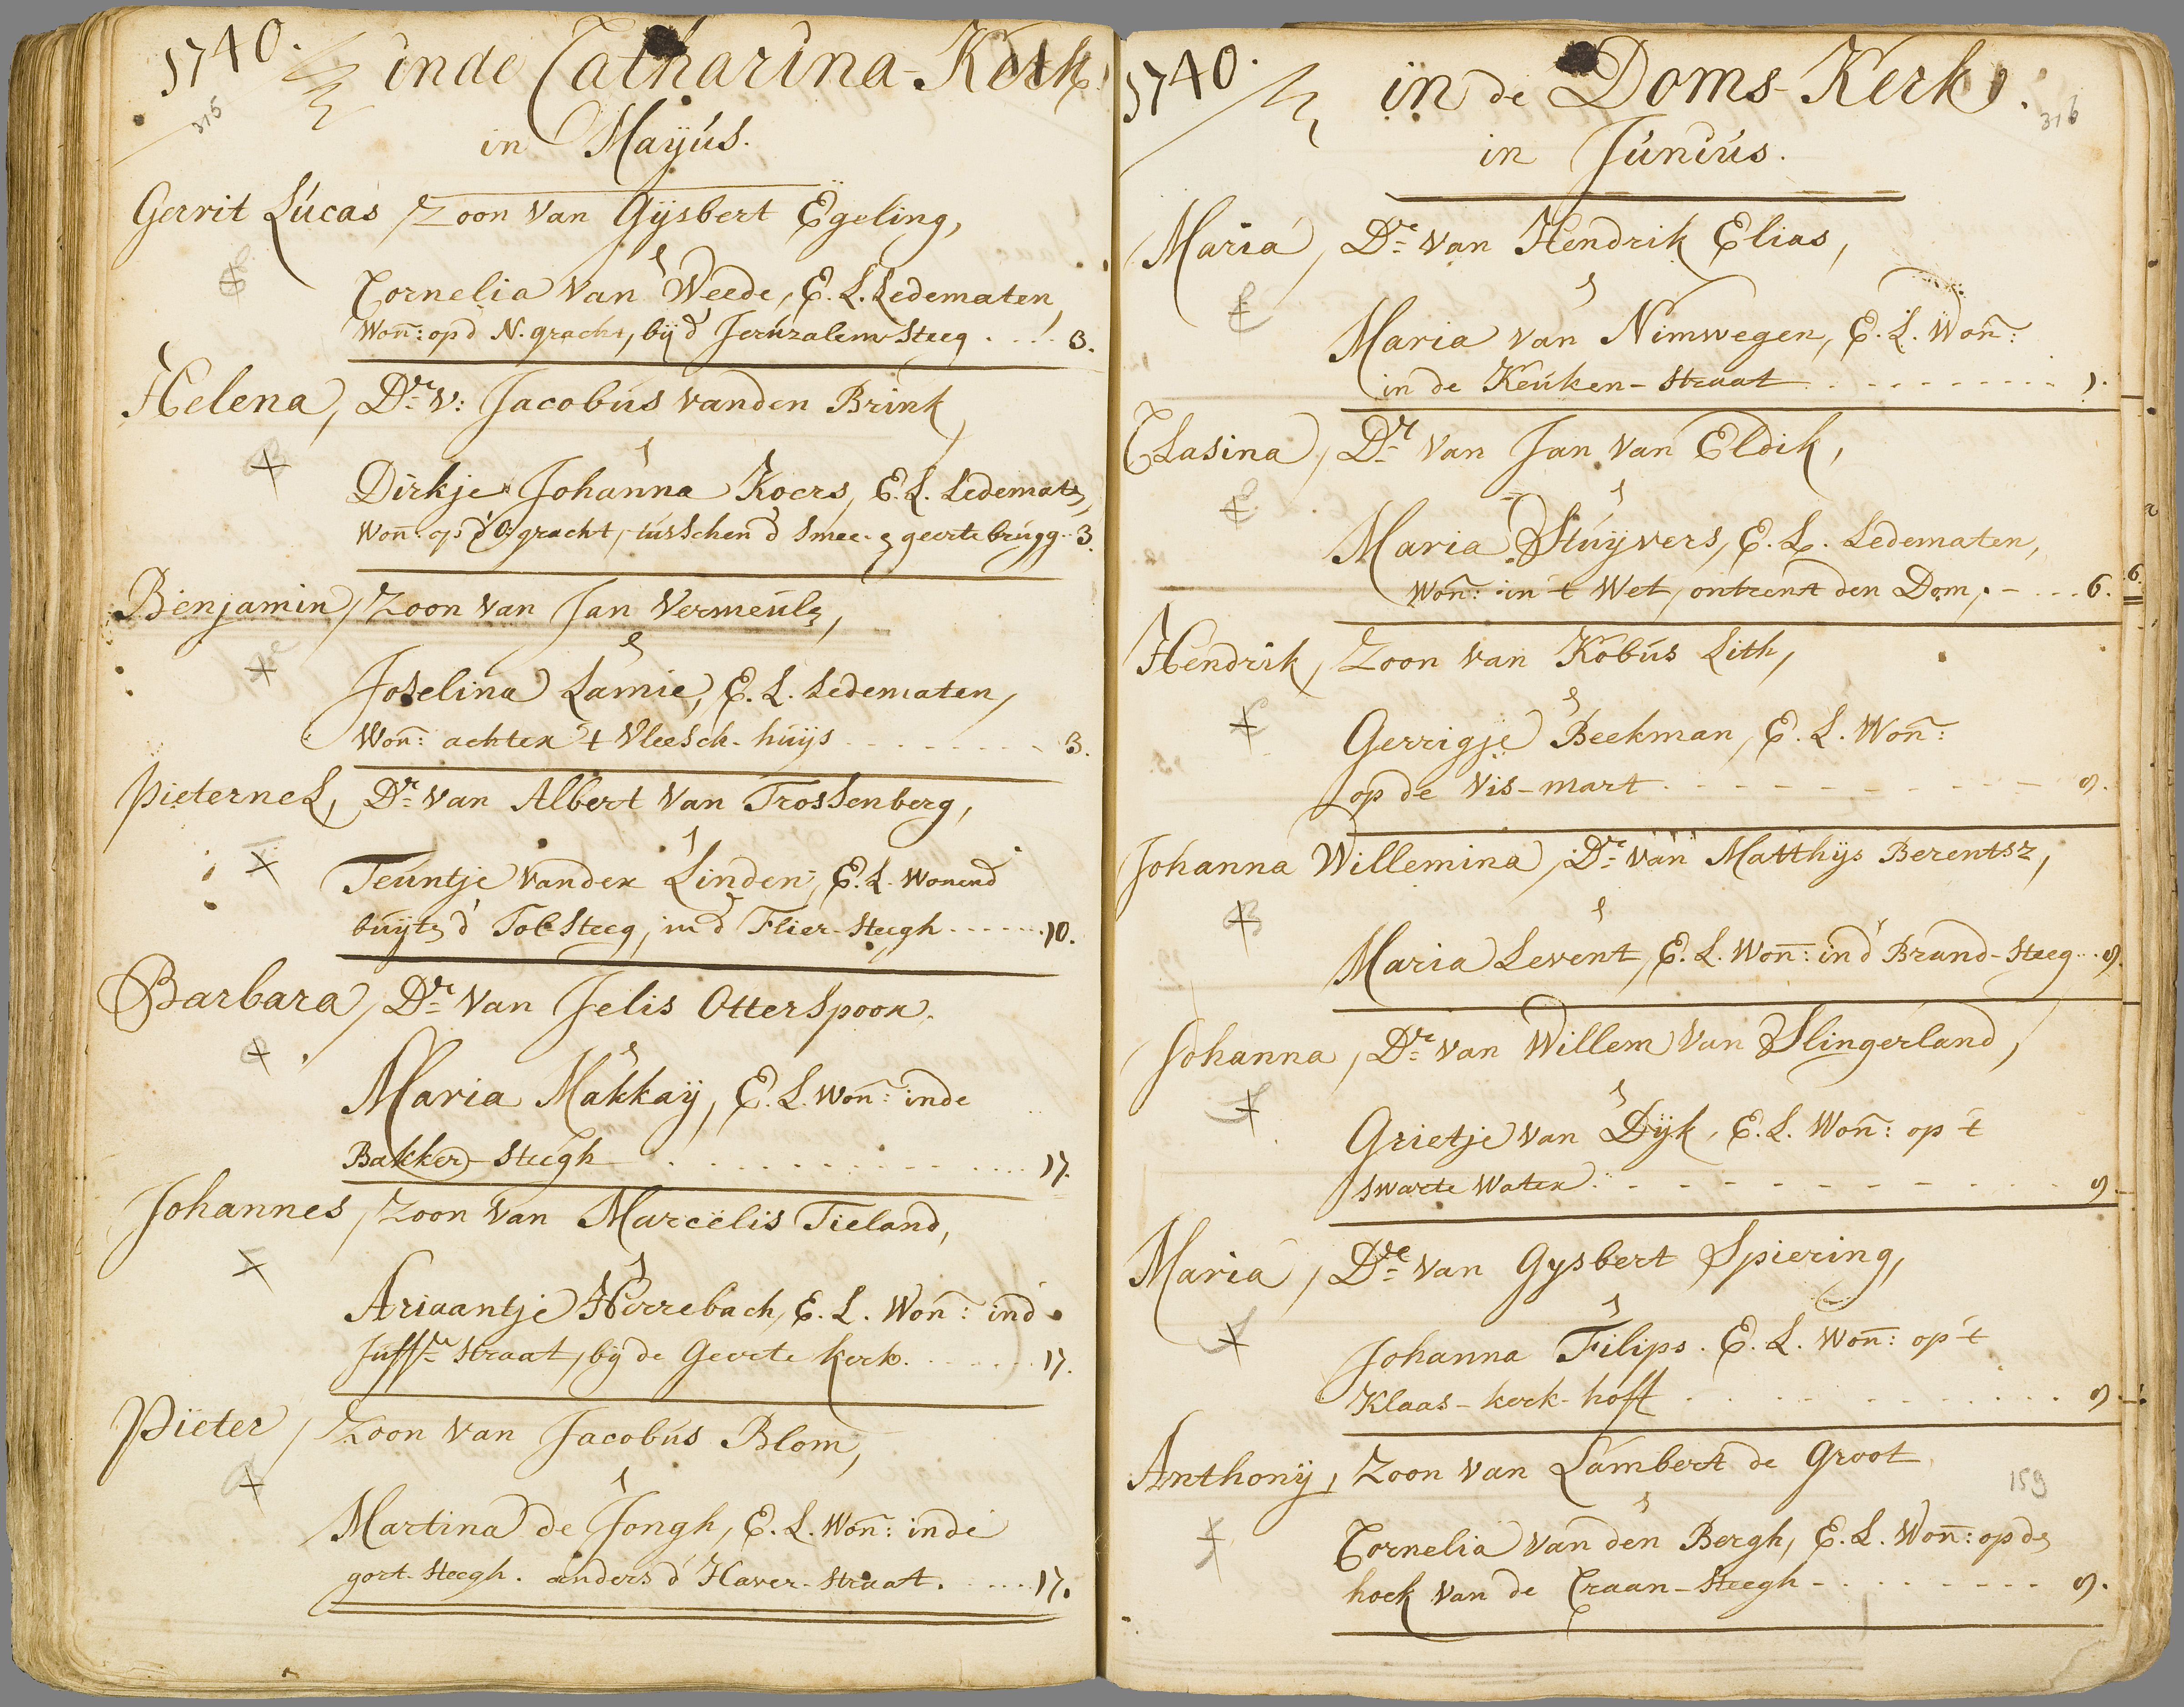 1740.
315
inde Catharina-Kerk.
in Mayús.
Gerrit Lúcas, Zoon van Gÿsbert Egeling,
Cornelia van Weede, E. L. Ledematen,
Won: op d' N. gracht, bÿ d' Jerúzalem Steeg . . . 3.
Helena, Dr. v: Jacobús vanden Brink
Dirkje Johanna Koers, E. L. Ledemate,
Won: op d' O: gracht, tússchen d' Smee- geerte brúgg. 3.
Benjamin, Zoon van Jan Vermeúle,
Joselina Lamie, E. L. Ledematen,
Won: achter 't Vleesch-húÿs . . . 3.
Pieternel, Dr. van Albert van Trossenberg,
Teúntje vander Linden, E. L. Wonend
búÿte d' Tol-Steeg, in d' Flier-Steegh . . . 10.
Barbara, Dr. van Jelis Otterspoor.
Maria Makkaÿ, E. L. Won: inde
Bakker-Steegh . . . 17.
Johannes, Zoon van Marcelis Tieland,
Ariaantje Herrebach, E. L. Won: in d'
Júffr. Straat, bÿ de Geerte kerk . . . 17.
Pieter, Zoon van Jacobús Blom,
Martina de Jongh, E. L. Won: inde
gort-Steegh. anders d' Haver-Straat. . . . 17.
1740.
316
in de Doms-Kerk.
in Júniús.
Maria, Dr. van Hendrik Elias,
Maria van Nimwegen, E. L. Won:
in de Keúken-Straat . . . 1.
Clasina, Dr. van Jan van Eldik,
Maria Stúÿvers, E. L. Ledematen,
Won: in 't Wet, ontrent den Dom, . . . 6.
6.
Hendrik, Zoon van Kobús Lith,
Gerrigje Beekman, E. L. Won:
op de Vis-mart . . . 9.
Johanna Willemina, Dr. van Matthÿs Berentsz,
Maria Levent, E. L. Won: in d' Brand-Steeg . . 9.
Johanna, Dr. van Willem van Slingerland,
Grietje van Dÿk, E. L. Won: op 't
Swarte Water . . . 9.
Maria, Dr. van Gysbert Spiering,
Johanna Filips. E. L. Won: op 't
Klaas-kerk-hoff . . . 9.
Anthonÿ, Zoon van Lambert de Groot
159
Cornelia van den Bergh, E. L. Won: op de
hoek van de Craan-Steegh . . . 9.